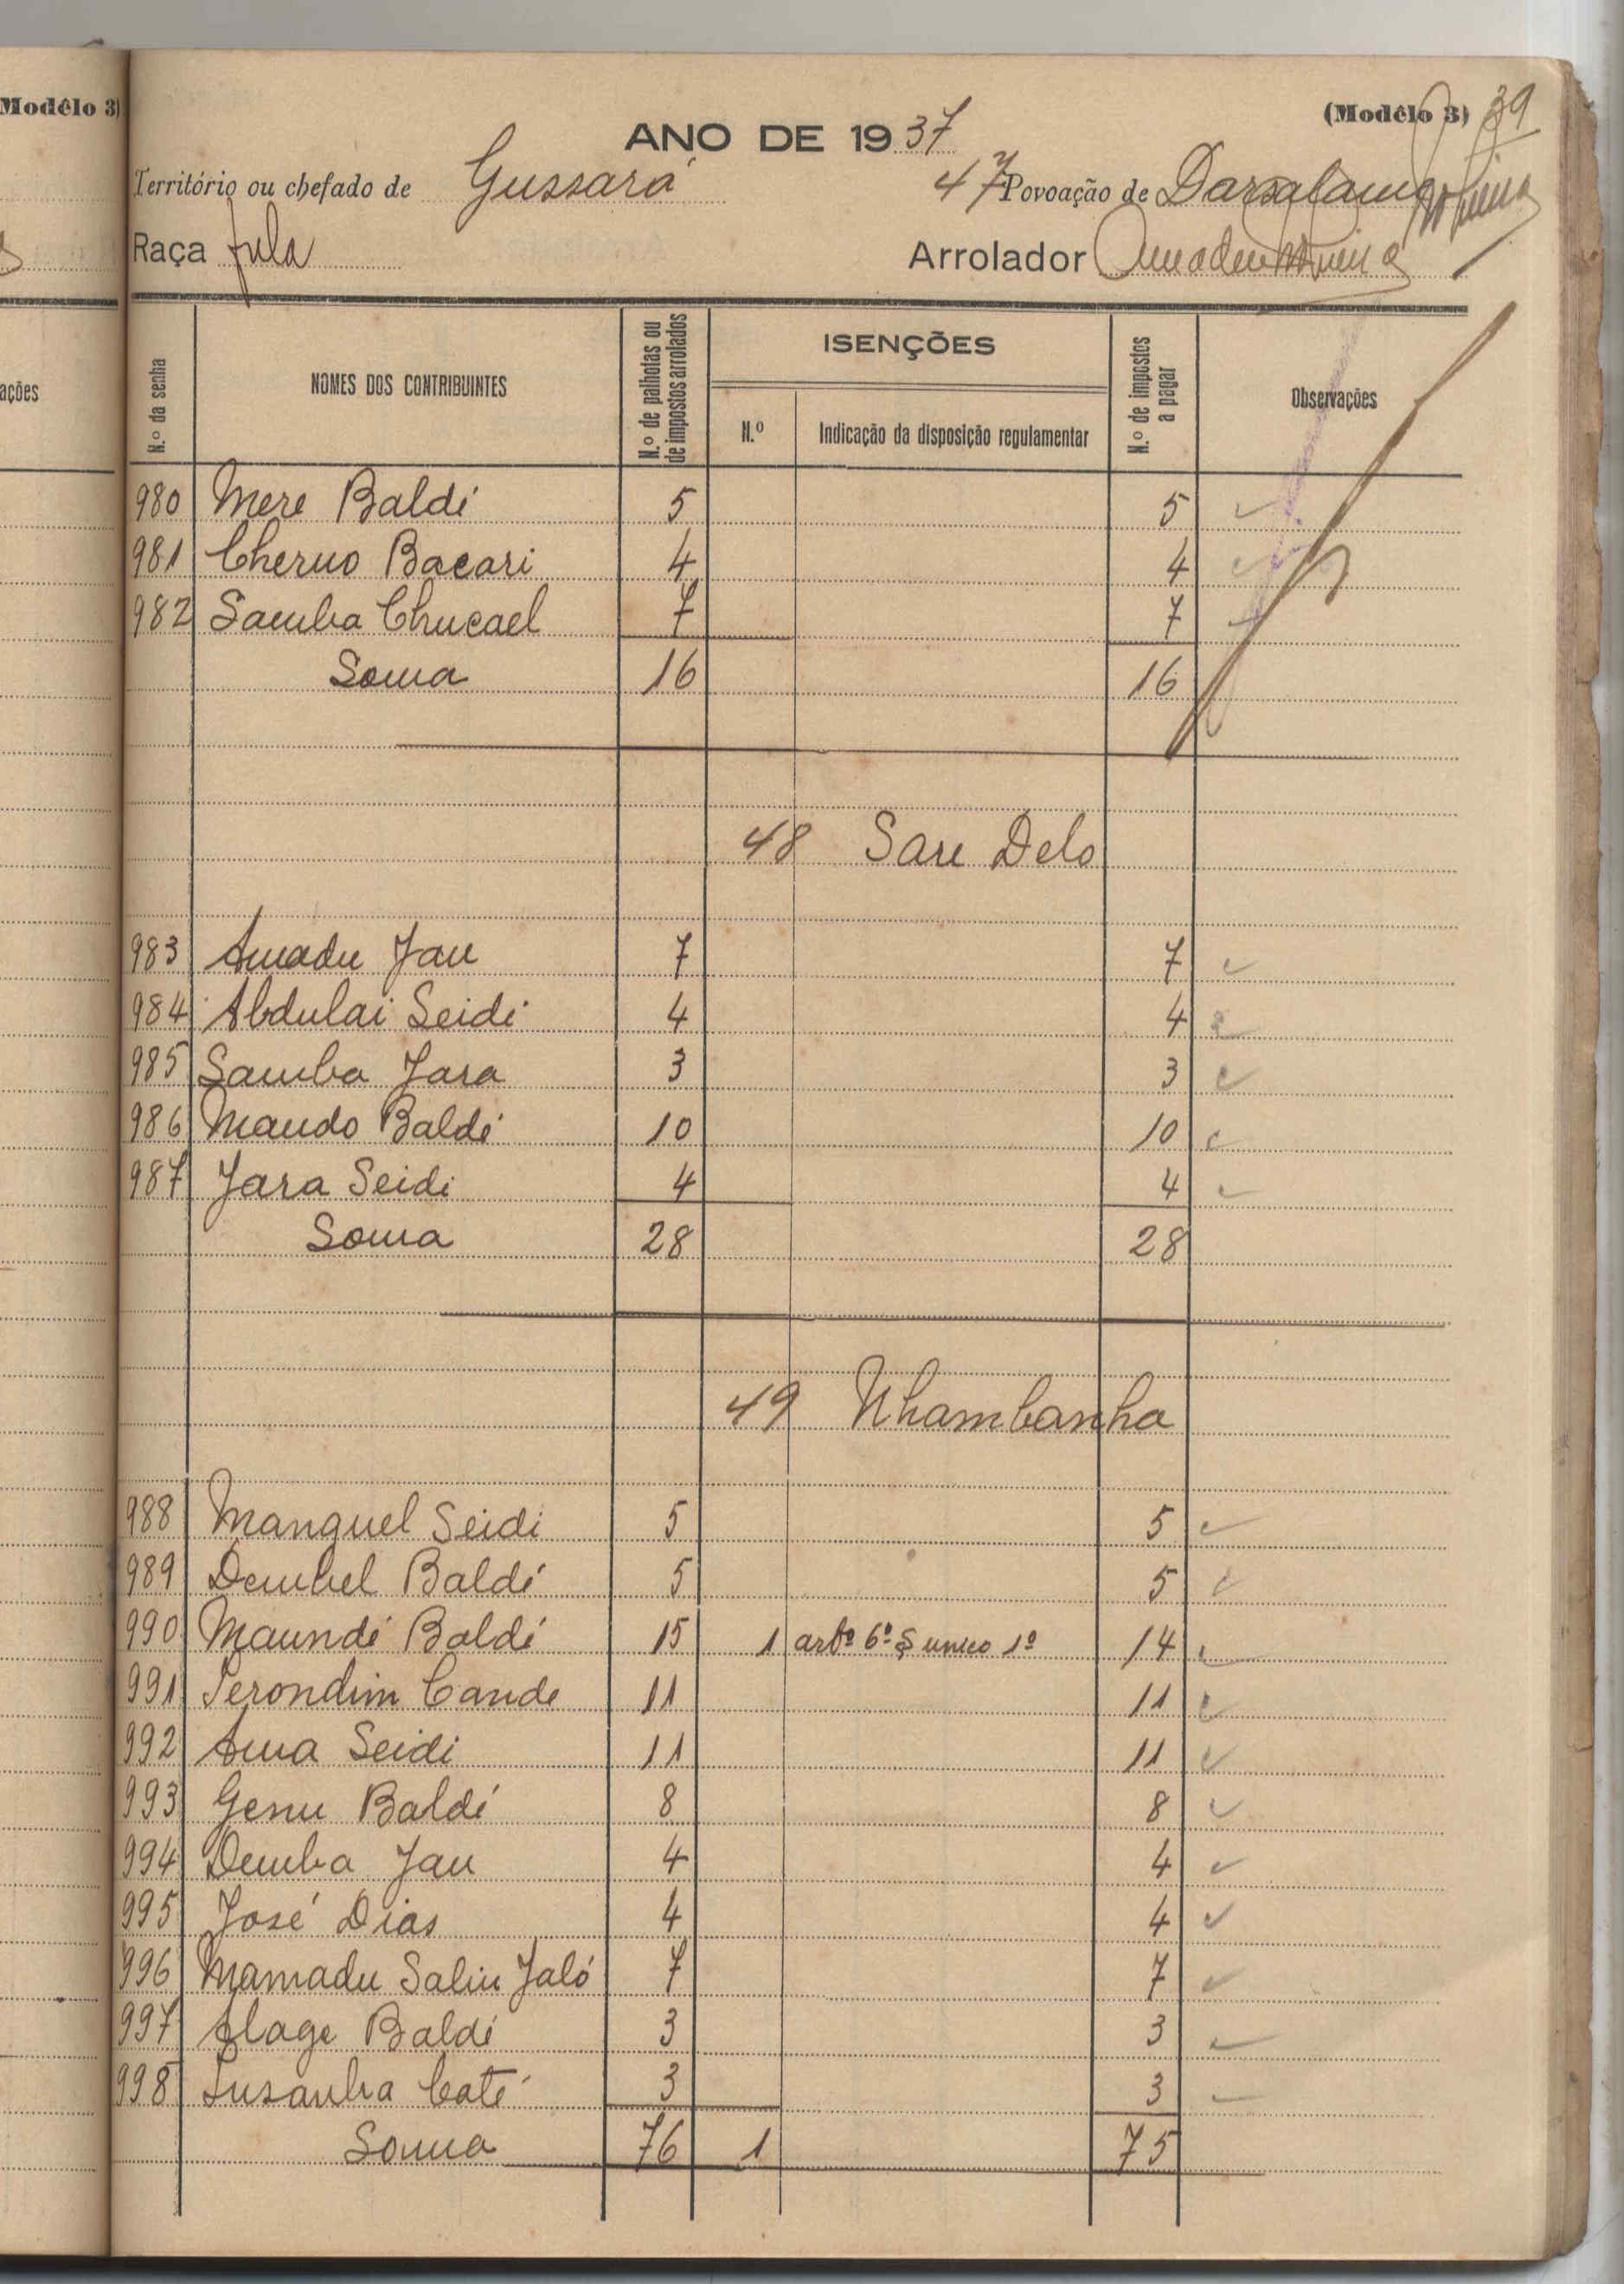 Modêlo 3)
ações
(Modêlo 3) 39
ANO DE 1937
Território ou chefado de Gussará 47 Povoação de Darsalame
Raça fula Arrolador Amadeu
N.º da senha
NOMES DOS CONTRIBUINTES
N.º de palhotas ou de impostos arrolados
ISENÇÕES
N.º
Indicação da disposição regulamentar
N.º de impostos a pagar
Observações
980 Mere Baldé 5 5
981 Cherno Bacari 4 4
982 Samba Chucael 7 7
Soma 16 16
48 Sare Delo
983 Amadu Jau 7 7
984 Abdulai Seidi 4 4
985 Samba Jara 3 3
986 Maudo Baldé 10 10
987 Jara Seidi 4 4
Soma 28 28
49 Nhambanha
988 Manguel Seidi 5 5
989 Dembel Baldé 5 5
990 Maundé Baldé 15 1 artº 6º § unico 1º 14
991 Serondim Cande 11 11
992 Ama Seidi 11 11
993 Genu Baldé 8 8
994 Demba Jau 4 4
995 José Dias 4 4
996 Mamadu Saliu Jaló 7 7
997 Alage Baldé 3 3
998 Susanha Caté 3 3
Soma 76 1 75